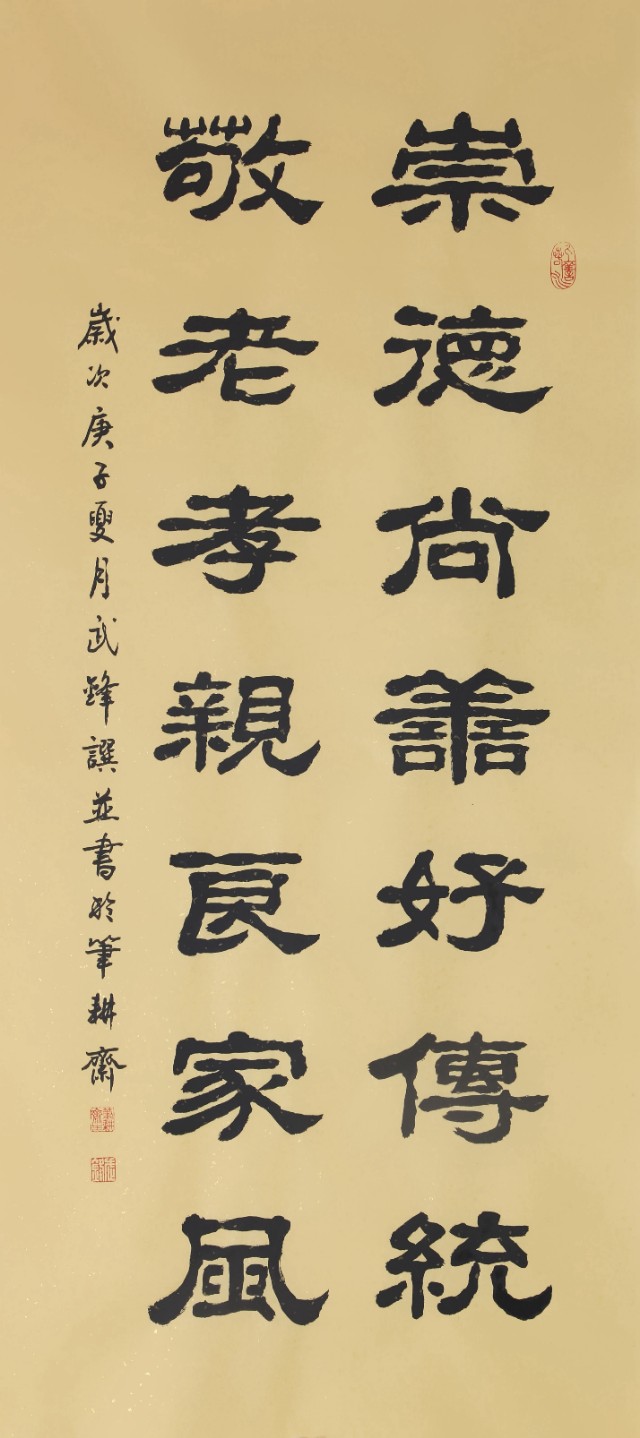 崇德尚善好傳統
敬老孝親良家風
歲次庚子夏月武鋒譔並書於筆耕齋